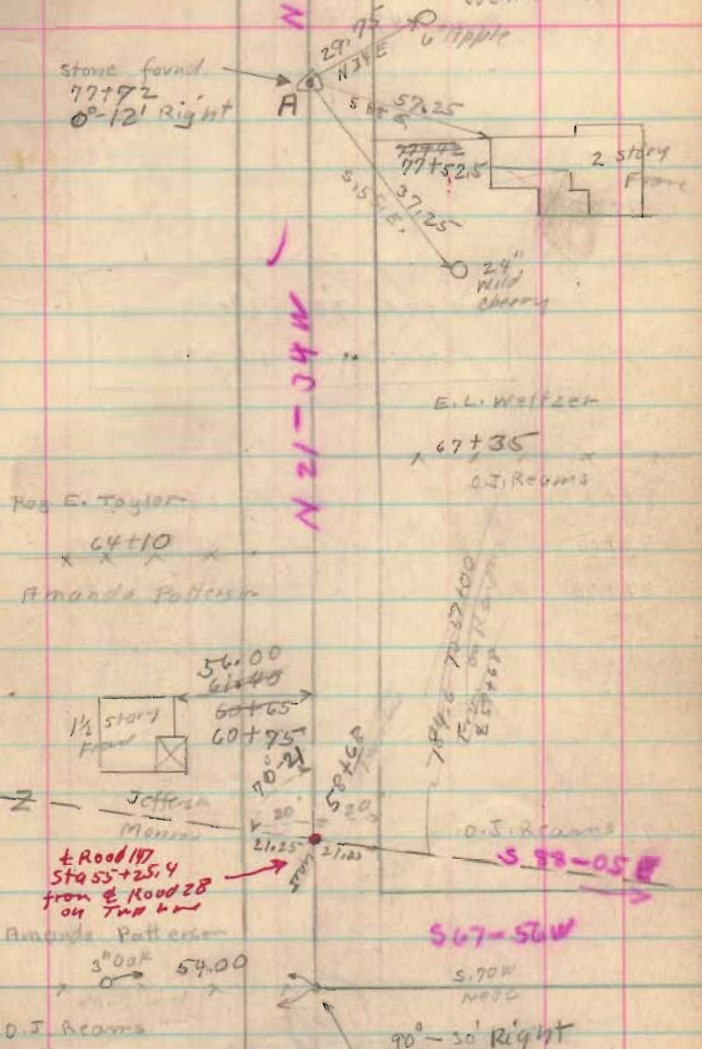 N
29.75
6" Apple
N 34 E
stone found.
77+72
0°-12' Right
A
57.25
77+42
77+52.5
2 story
Frame
S.55.E.
37.25
24"
Wild
cherry
N 21-34 W
E.L. Weltzer
67+35
O.J. Reams
Roy E. Taylor
64+10
Amanda Patterson
56.00
61.40
60+65
60+75
1½ story
Frame
70°-21'
58+68
784.6 To 57+00
20'
20
Z
Jefferson
Monroe
21.25
21.25
O.J. Reams
S 88-05 E
℄ Road 147
Sta 55+25.4
from ℄ Road 28
on Twp line
Amanda Patterson
S67-56W
3" Oak
54.00
S.70W
O.J. Reams
90°-30' Right